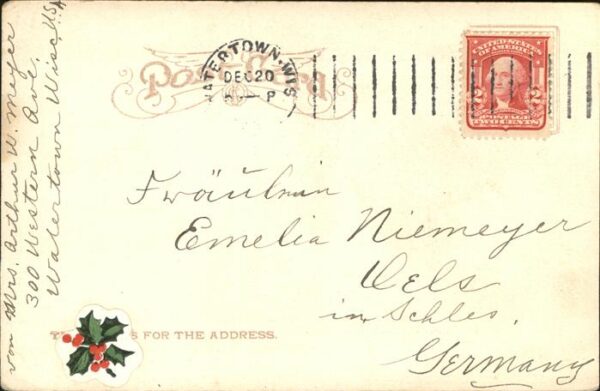 von Mrs. Arthur W. Meyer
300 Western Ave.
Watertown Wisc. U.S.A
Post Card
WATERTOWN, WIS.
DEC 20
P
UNITED STATES
OF AMERICA
2 2
POSTAGE
TWO CENTS
Fräulein
Emelia Niemeyer
Oels
in Schles.
Germany
S FOR THE ADDRESS.